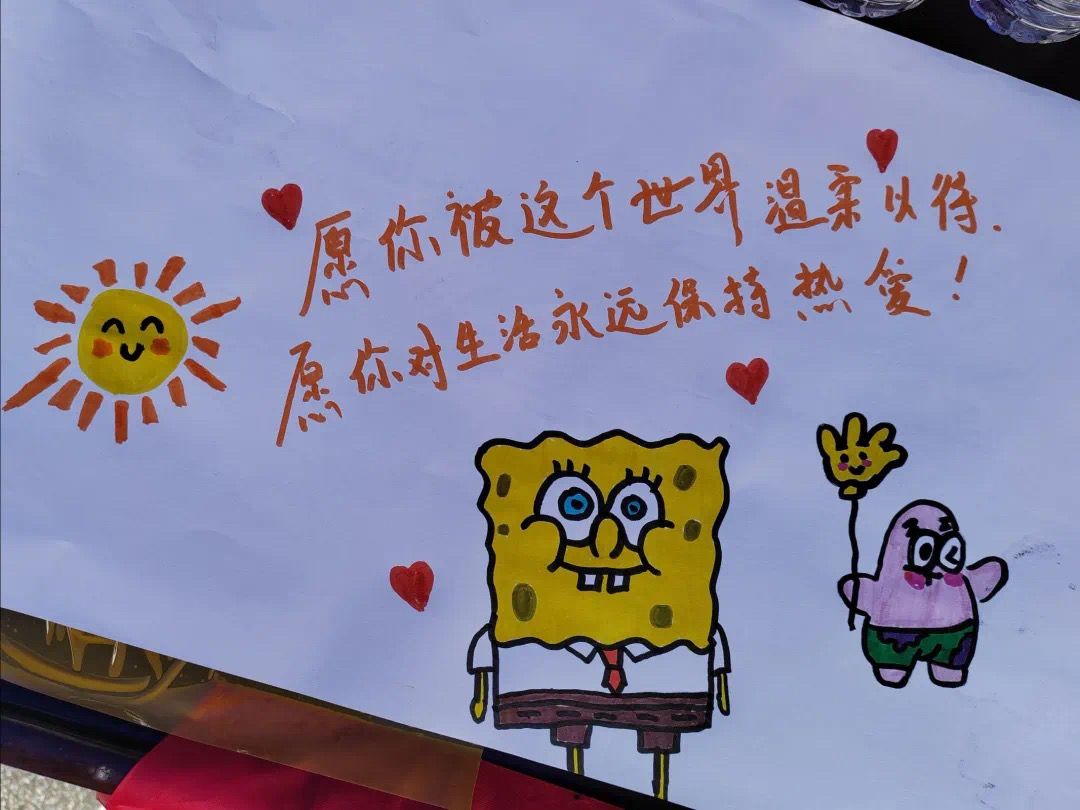 愿你被这个世界温柔以待.
愿你对生活永远保持热爱!